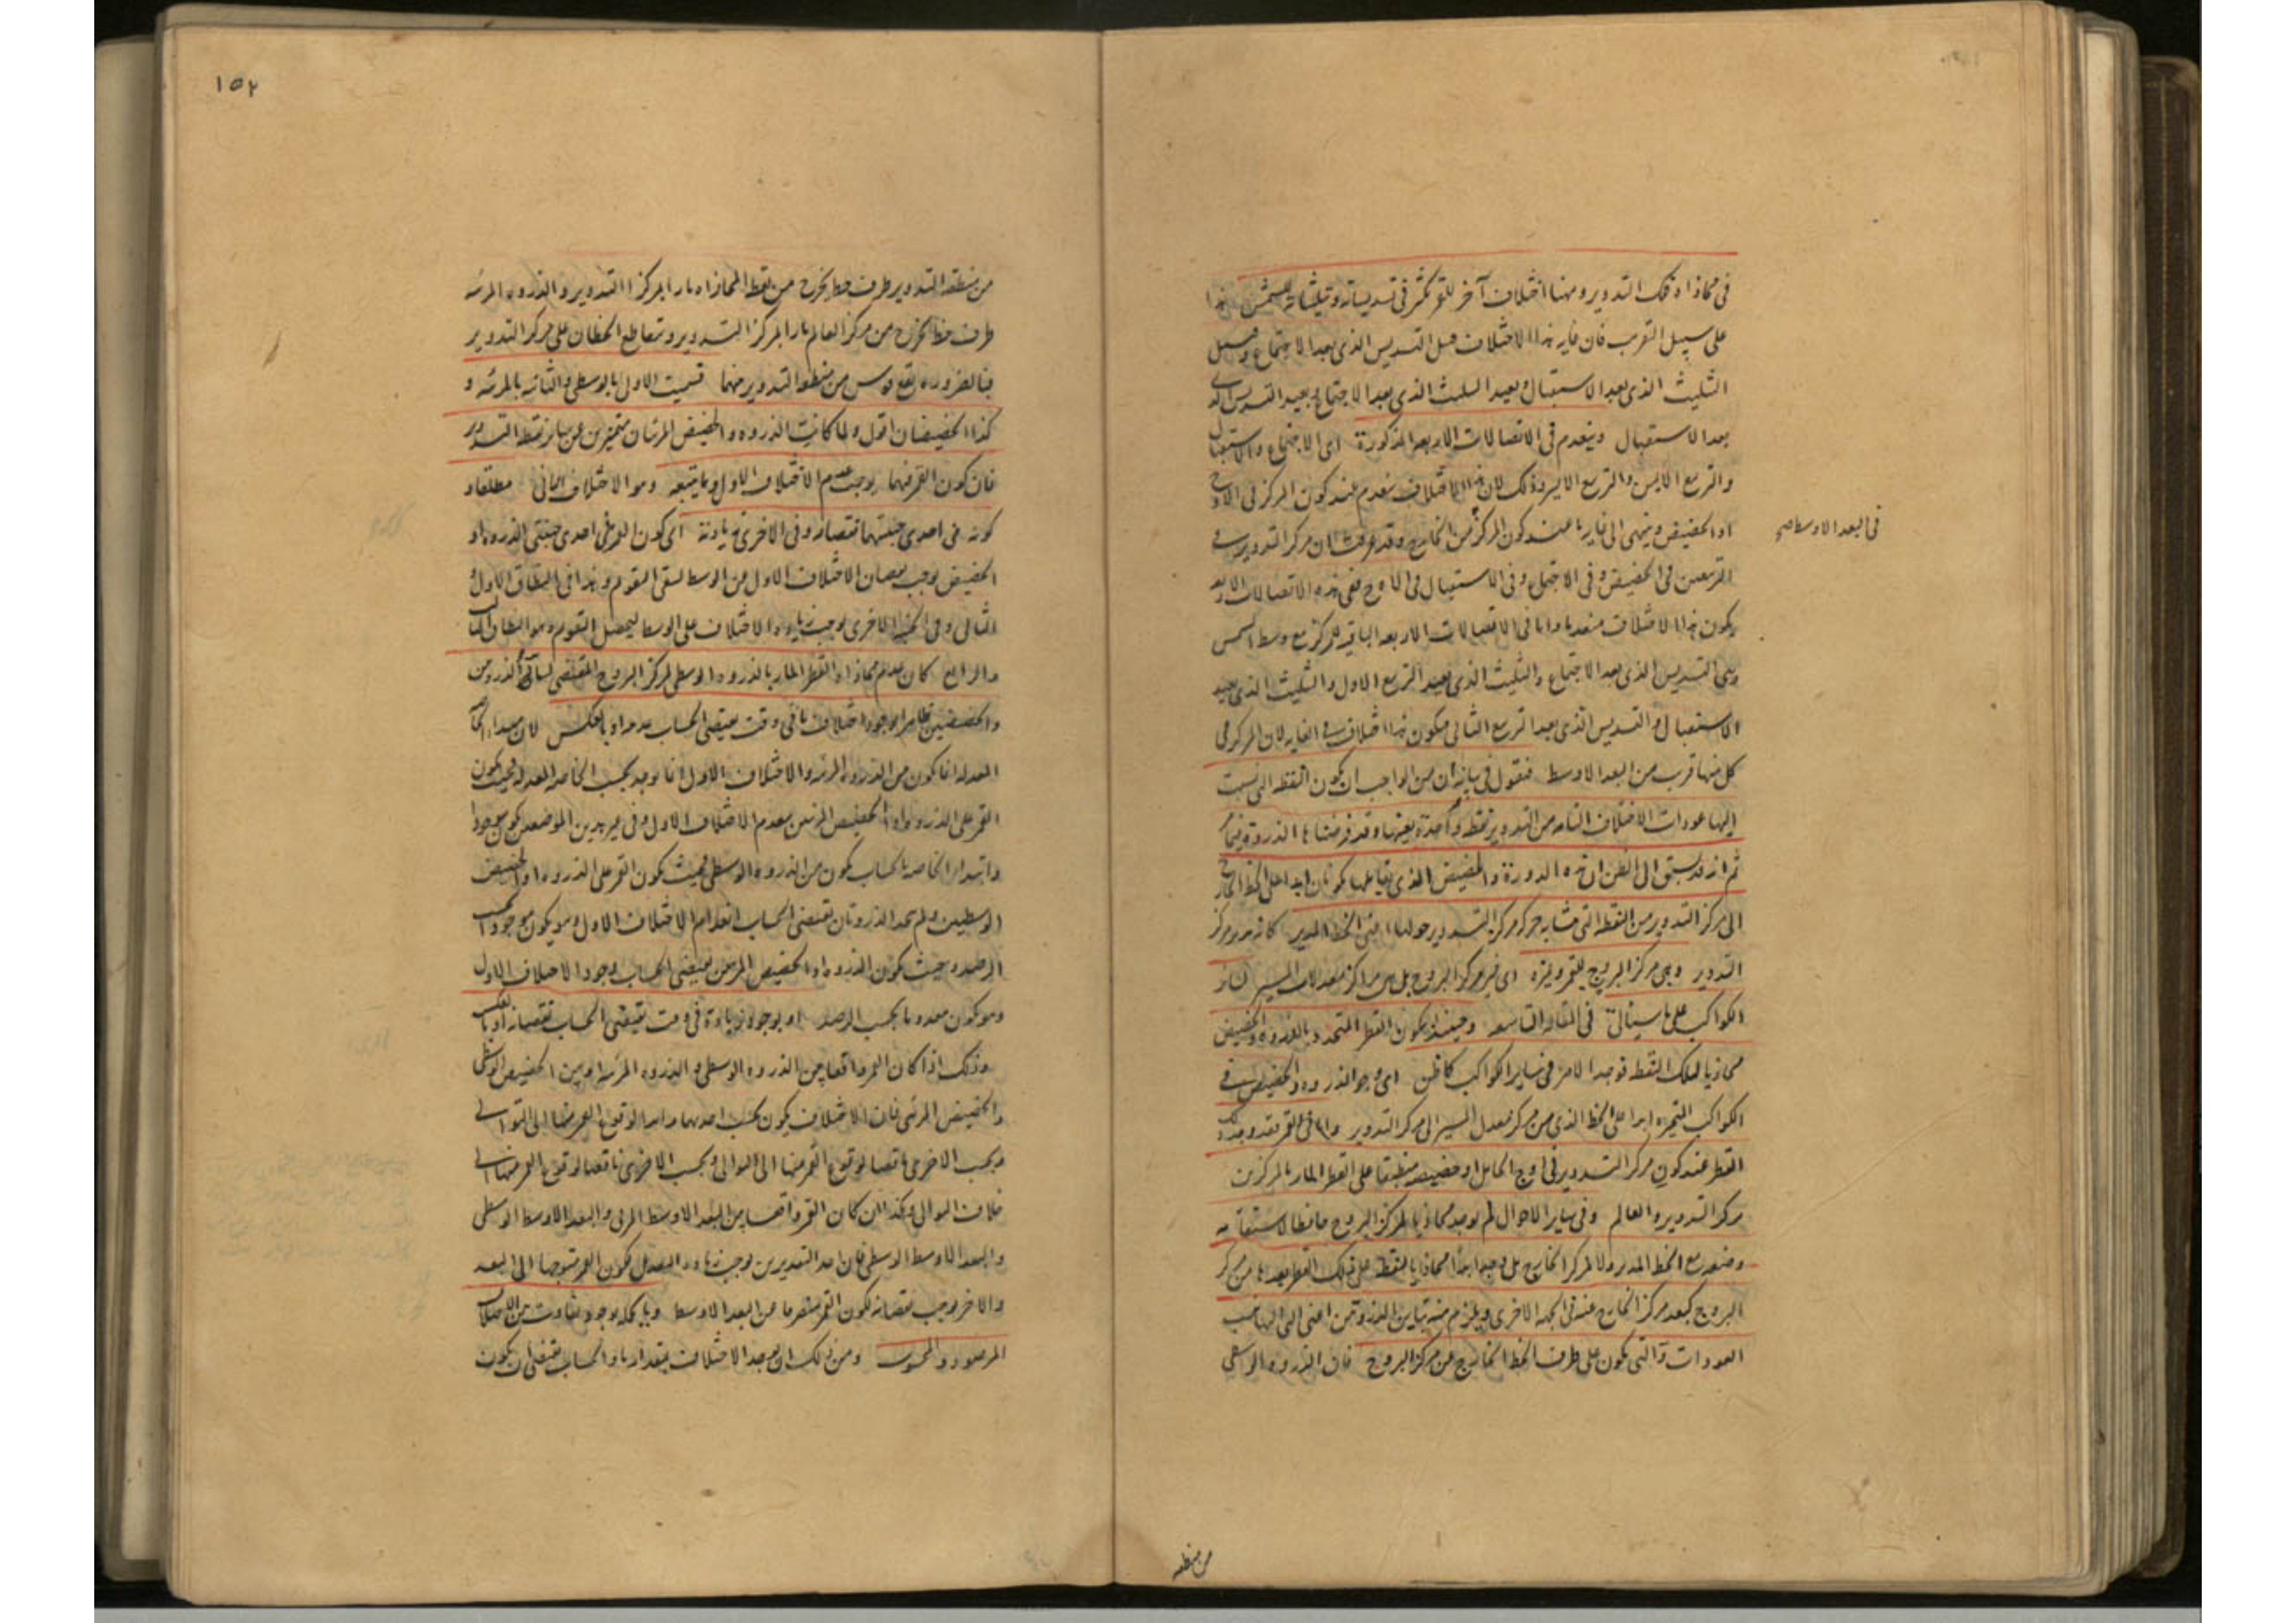 في محاذاة قطر التدوير وههنا اختلاف آخر للقمر في تسديساته وتثليثاته للشمس هذا
على سبيل التقريب فان غاية هذا الاختلاف قبل التسديس الذي بعد الاجتماع وقبل
التثليث الذي بعد الاستقبال وبعيد التثليث الذي بعد الاجتماع وبعيد التسديس الذي
بعد الاستقبال وينعدم في الاتصالات الاربعة المذكورة اي الاجتماع والاستقبال
والتربيع الايمن والتربيع الايسر وذلك لان هذا الاختلاف ينعدم عند كون المركز في الاوج
او الحضيض وينتهي الى غايته عند كون المركز من الخارج وقد عرفت ان مركز التدوير في
في البعد الاوسط صح
التربيعين في الحضيض وفي الاجتماع وفي الاستقبال في الاوج ففي هذه الاتصالات الاربعة
يكون هذا الاختلاف منعدما واما في الاتصالات الاربعة الباقية للمركز مع وسط الشمس
وهي التسديس الذي بعد الاجتماع والتثليث الذي بعيد التربيع الاول والتثليث الذي بعيد
الاستقبال والتسديس الذي بعد التربيع الثاني فيكون هذا الاختلاف في الغاية لان المركز في
كل منها قرب من البعد الاوسط فنقول في بيانه ان من الواجب ان يكون النقطة التي نسبت
اليها عودات الاختلاف التامة من التدوير نقطة واحدة بعينها وقد فرضناها الذروة فيما
ثم انه قد يسبق الى الظن ان هذه الذروة والحضيض الذي يقابلها يكونان ابدا على الخط الخارج
الى مركز التدوير من النقطة التي تتشابه حركة مركز التدوير حولها اعني الخط المدير كانه يدير مركز
التدوير وهي مركز البروج للقمر وغيره اي غير مركز البروج بل هي مراكز معدلات المسير لسائر
الكواكب على ما سيأتي في المقالة التاسعة وحينئذ يكون القطر المتحدد بالذروة والحضيض
محاذيا لتلك النقطة فوجد الامر في سائر الكواكب كما ظن اي وجد الذروة والحضيض في
الكواكب المتحيرة ابدا على الخط الذي من مركز معدل المسير الى مركز التدوير واما في القمر فقد وجد ذلك
القطر عند كون مركز التدوير في اوج الحامل او حضيضه منطبقا على القطر المار بالمركزين
مركز التدوير والعالم وفي سائر الاحوال لم يوجد محاذيا لمركز البروج حافظا لاستقامة
وضعه مع الخط المدير ولا لمركز الخارج بل وجد ابدا محاذيا لنقطة على ذلك القطر بعدها من مركز
البروج كبعد مركز الخارج عنه في الجهة الاخرى ويلزم منه تباين الذروتين اعني التي اليها تنسب
العودات والتي تكون على طرف الخط الخارج من مركز البروج فان الذروة الوسطى
من منطقة
١٥٢
من منطقة التدوير طرف خط يخرج من نقطة المحاذاة مارا بمركز التدوير والذروة المرئية
طرف خط يخرج من مركز العالم مارا بمركز التدوير ويتقاطع الخطان على مركز التدوير
فبالضرورة يقع قوس من منطقة التدوير منهما فسميت الاول بالوسطى والثانية بالمرئية و
كذا الحضيضان اقول ولما كانت الذروة والحضيض المرئيان متميزين عن سائر نقط التدوير
فان كون القمر فيهما يوجب عدم الاختلاف الاول وما يتبعه وهو الاختلاف الثاني مطلقا و
كونه في احدى جنبتيهما نقصانه وفي الاخرى زيادته اي كون القمر في احدى جنبتي الذروة او
الحضيض يوجب نقصان الاختلاف الاول من الوسط ليبقى التقويم وهذا في النطاق الاول و
الثاني وفي الجنبة الاخرى يوجب زيادة الاختلاف على الوسط ليحصل التقويم وهو النطاق الثالث
والرابع كان عدم محاذاة القطر المار بالذروة الوسطى لمركز البروج المقتضي لتباين الذروتين
والحضيضين ظاهرا لوجود اختلاف ما في وقت يقتضي الحساب عدمه او بالعكس لان مبدأ الخاصة
المعدلة انما يكون من الذروة المرئية والاختلاف الاول انما يوجد بحسب الخاصة المعدلة فحيث يكون
القمر على الذروة او الحضيض المرئيين ينعدم الاختلاف الاول وفي غير هذين الموضعين يكون موجودا
وابتداء الخاصة بالحساب يكون من الذروة الوسطى فحيث يكون القمر على الذروة او الحضيض
الوسطيين ولم يتحد الذروتان يقتضي الحساب انعدام الاختلاف الاول وهو يكون موجودا بحسب
الرصد وحيث يكون الذروة او الحضيض المرئيين يقتضي الحساب وجود الاختلاف الاول
وهو يكون معدوما بحسب الرصد او بوجود زيادة في وقت يقتضي الحساب نقصانه او بالعكس
وذلك اذا كان القمر واقعا بين الذروة الوسطى والذروة المرئية او بين الحضيض الوسطى
والحضيض المرئي فان الاختلاف يكون بحسب احدهما زائدا لوقوع القمر منها الى التوالي
وبحسب الاخرى ناقصا لوقوع القمر منها الى التوالي وبحسب الاخرى ناقصا لوقوع القمر منها الى
خلاف التوالي وكذا ان كان القمر واقعا بين البعد الاوسط المرئي والبعد الاوسط الوسطى
والبعد الاوسط الوسطى فان احد التقديرين يوجب زيادة التعديل لكون القمر متوجها الى البعد
والاخر يوجب نقصانه لكون القمر منصرفا عن البعد الاوسط وبالجملة بوجود تفاوت بين الاختلاف
المرصود والمحسوب ومن ذلك ان يوجد الاختلاف بمقدار ما والحساب يقتضي ان يكون